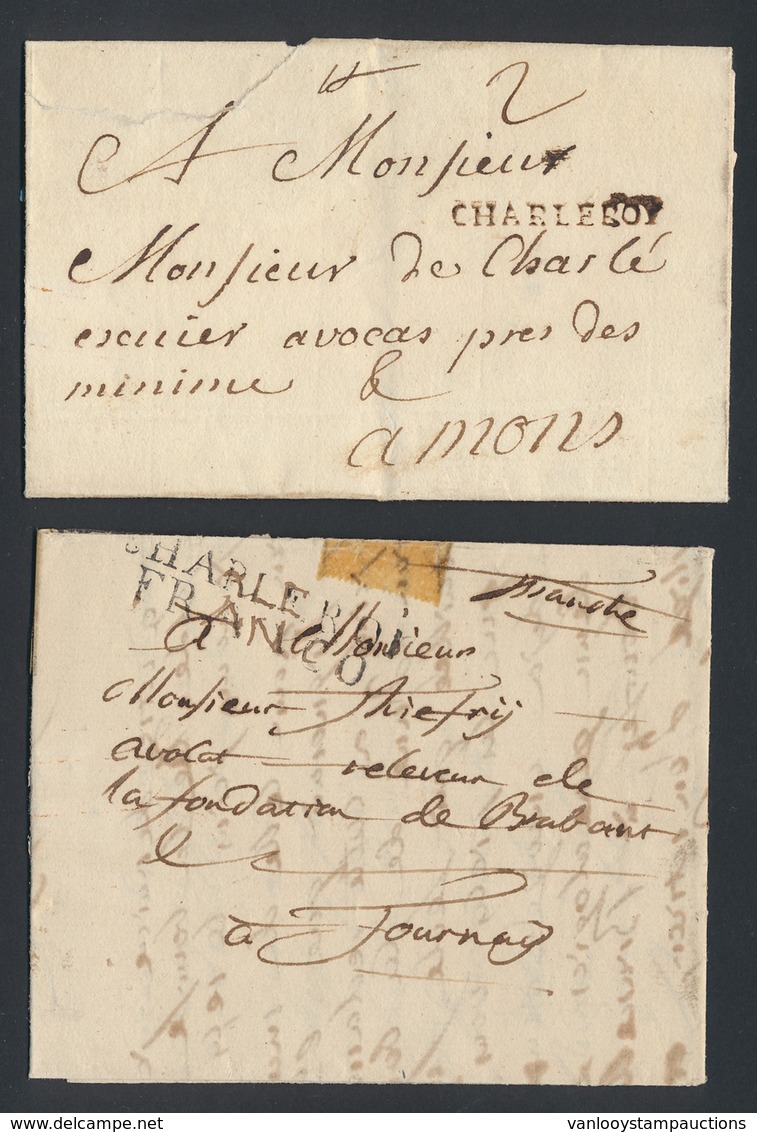 2
A Monsieur
CHARLEROY
Monsieur de Charlé
escuier avocas pres des
minime &
a mons
CHARLEROY
FRANCO
franche
A Monsieur
Monsieur Thiefrij
avocat receveur de
la fondation de Brabant
&
à Tournaÿ
www.delcampe.net
vanlooystampauctions